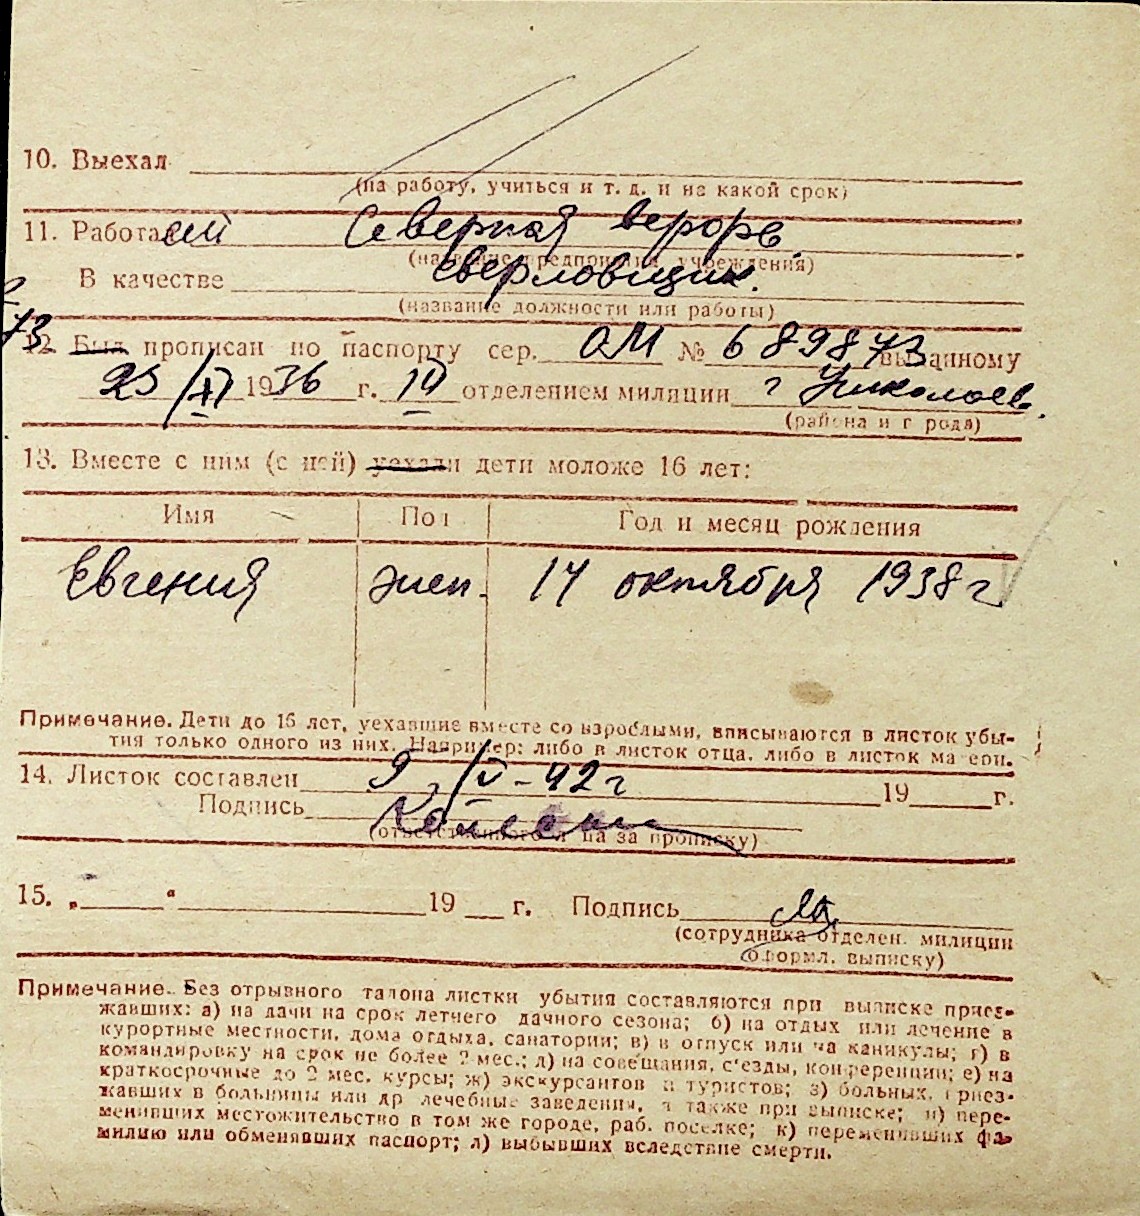 10. Выехал
(на работу, учиться и т. д. и на какой срок)
11. Работает Северная верфь
(название предприятия, учреждения)
В качестве сверловщик.
(название должности или работы)
73
12 Был прописан по паспорту сер. ОМ № 689873 выданному
25/XI 1936 г. IV отделением милиции г Николаев.
(района и города)
13. Вместе с ним (с ней) уехали дети моложе 16 лет:
Имя Пол Год и месяц рождения
Евгения жен. 14 октября 1938 г
Примечание. Дети до 16 лет, уехавшие вместе со взрослыми, вписываются в листок убы-
тия только одного из них. Например: либо в листок отца, либо в листок матери.
14. Листок составлен 9/V-42 г 19 г.
Подпись
(ответственного л-ца за прописку)
15. „ “ 19 г. Подпись
(сотрудника отделен. милиции
оформл. выписку)
Примечание. Без отрывного талона листки убытия составляются при выписке приез-
жавших: а) на дачи на срок летнего дачного сезона; б) на отдых или лечение в
курортные местности, дома отдыха, санатории; в) в отпуск или на каникулы; г) в
командировку на срок не более 2 мес.; д) на совещания, с'езды, конференции; е) на
краткосрочные до 2 мес. курсы; ж) экскурсантов и туристов; з) больных, приез-
жавших в больницы или др лечебные заведения, а также при выписке; и) пере-
менивших местожительство в том же городе, раб. поселке; к) переменивших фа-
милию или обменявших паспорт; л) выбывших вследствие смерти.